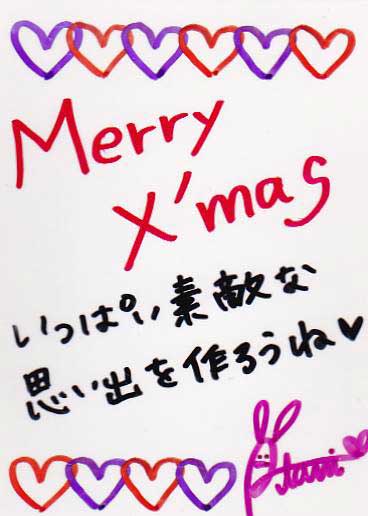 Merry
X'mas
いっぱい素敵な
思い出を作ろうね♥